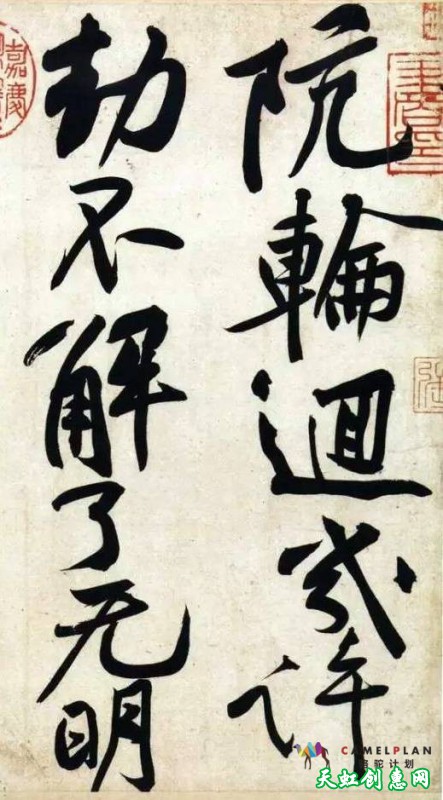 阬輪迴幾許
劫不解了无明
嘉慶
CAMELPLAN
骆驼计划
天虹创惠网